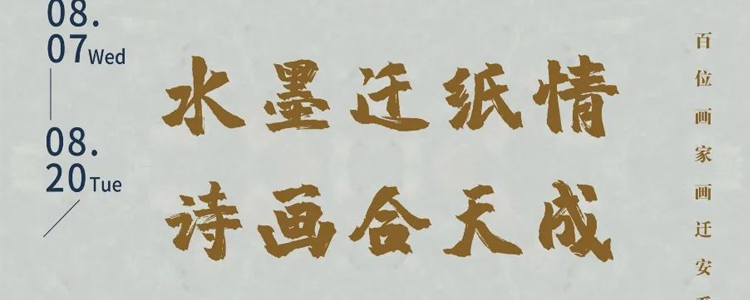 08.
07 Wed
08.
20 Tue
水墨迁纸情
诗画合天成
百位画家画迁安